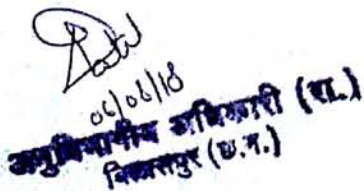 06/06/18
अनुविभागीय अधिकारी (रा.)
बिलासपुर (छ.ग.)